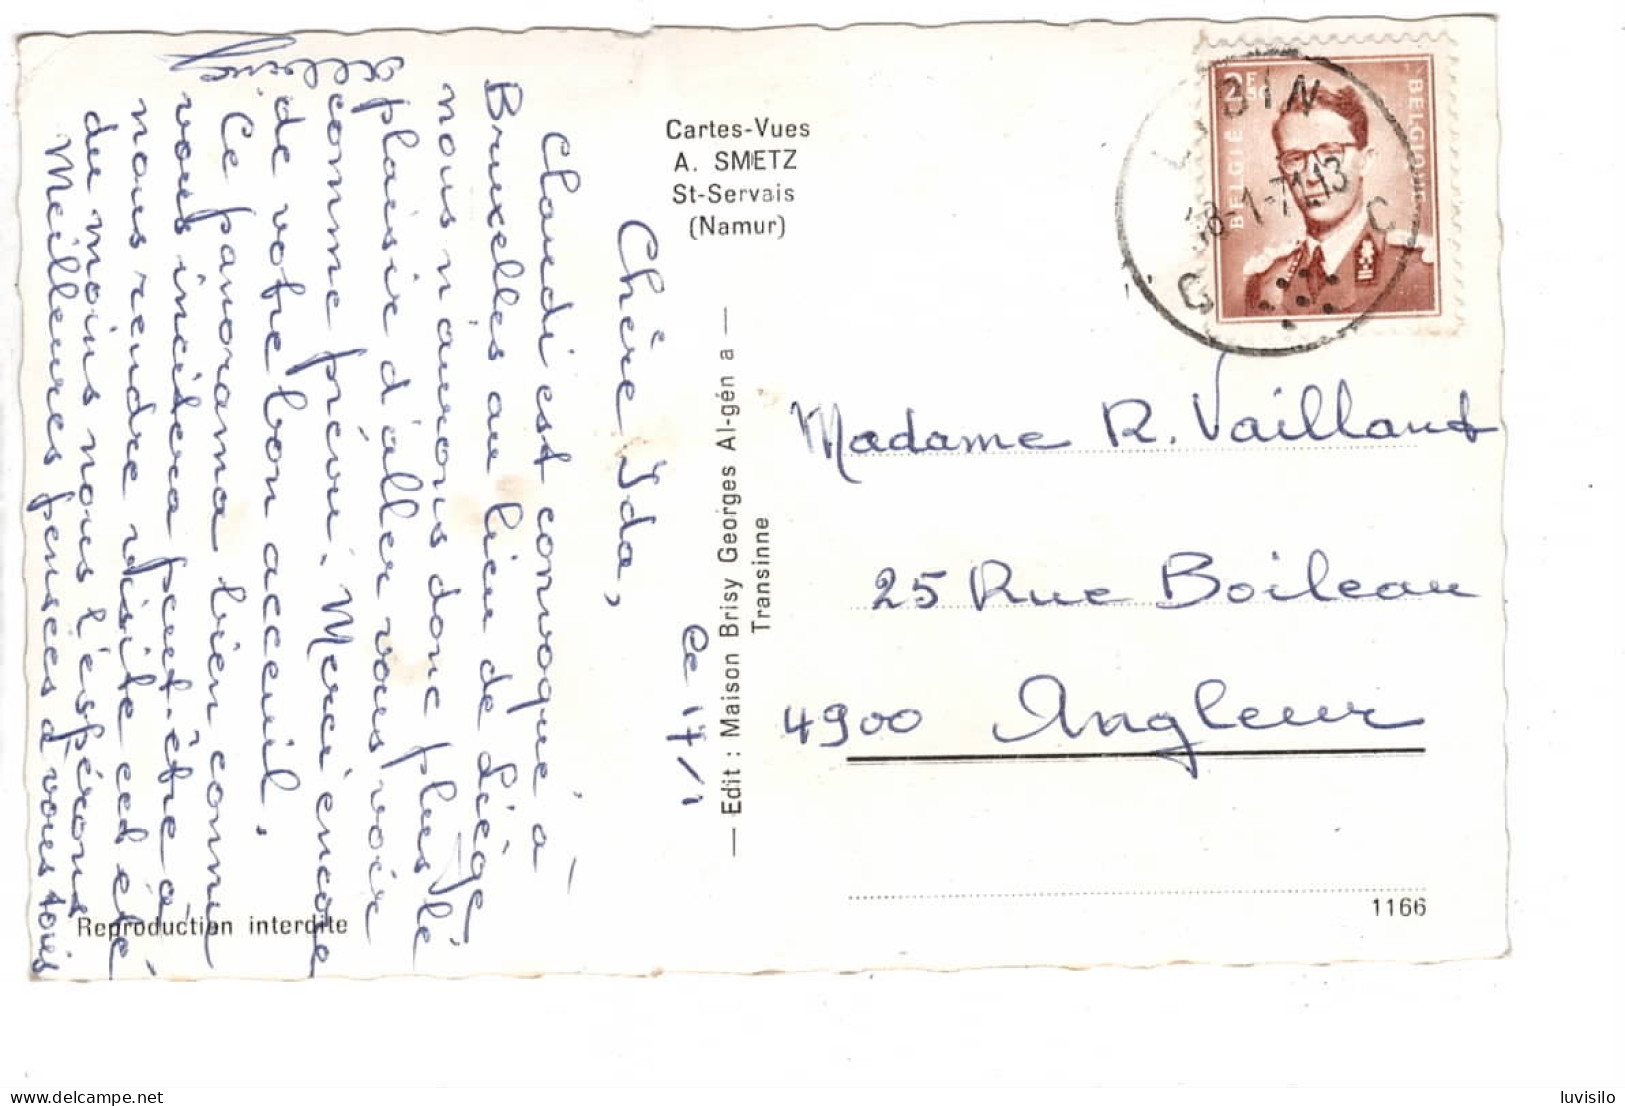 Cartes-Vues
A. SMETZ
St-Servais
(Namur)
ce 17/1
Chère Ida,
Claudi est convoqué à
Bruxelles au lieu de Liège
nous n'aurons donc plus le
plaisir d'aller vous voir
comme prévu. Merci encore
de votre bon acceuil.
Ce panorama bien connu
vous incitera peut-être à
nous rendre visite cet été
du moins nous l'espérons
Meilleures pensées à vous tous
— Edit : Maison Brisy Georges Al-gén a —
Transinne
Reproduction interdite
2F50
BELGIË
BELGIQUE
LIBIN
18-1-71-13
Madame R. Vaillant
25 Rue Boileau
4900 Angleur
1166
delcampe
luvisilo